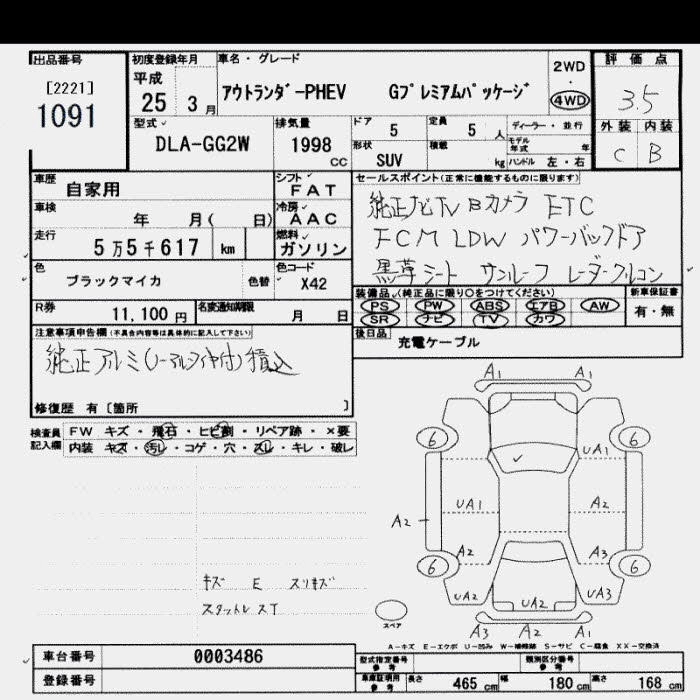 出品番号
[2221]
1091
初度登録年月
平成
25 3月
車名・グレード
アウトランダ-PHEV Gプレミアムパッケージ
2WD
・
4WD
評価点
3.5
外装 内装
C B
型式
DLA-GG2W
排気量
1998
CC
ドア 5
定員 5人
形状 SUV
積載 kg
ディーラー・並行
モデル年式 年
ハンドル 左・右
車歴 自家用
車検 年 月( 日)
走行 5万5千617 km
色 ブラックマイカ 色替
R券 11,100円
名変通知期限 月 日
シフト
FAT
冷房
AAC
燃料
ガソリン
色コード
X42
セールスポイント(正常に機能するものに限ります)
純正ナビTV Bカメラ ETC
FCM LDW パワーバックドア
黒革シート サンルーフ レーダークルコン
装備品(純正品に限り○をつけてください)
PS PW ABS エアB AW
SR ナビ TV カワ
新車保証書
有・無
後日品 充電ケーブル
注意事項申告欄(不具合内容等は具体的に記入して下さい)
純正アルミ(ノーマルタイヤ付)積込
修復歴 有[箇所 ]
検査員記入欄
FW キズ・飛石・ヒビ割・リペア跡・×要
内装 キズ・汚レ・コゲ・穴・スレ・キレ・破レ
キズ E スリキズ
スタットレス T
A1 A1
6 6
UA1
UA1 A2
A2
A2 A3
6 6
UA2 UA2 UA3
A3 A2 A1
スペア
A-キズ E-エクボ U-凹み W-補修跡 S-サビ C-腐食 XX-交換済
車台番号 0003486
登録番号
型式指定番号 参考
類別区分番号 参考
車庫証明用 参考
長さ 465cm 幅 180cm 高さ 168cm